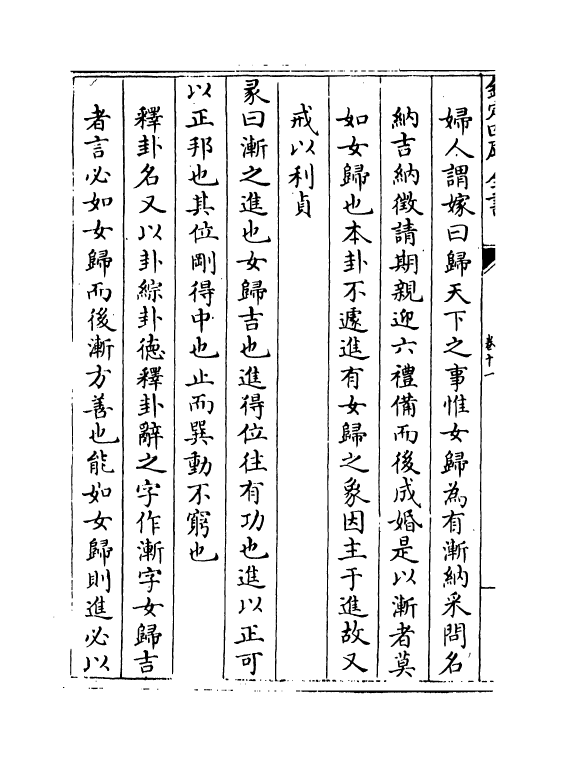 欽定四庫全書
卷十一
婦人謂嫁曰歸天下之事惟女歸為有漸納采問名
納吉納徵請期親迎六禮備而後成婚是以漸者莫
如女歸也本卦不遽進有女歸之象因主于進故又
戒以利貞
彖曰漸之進也女歸吉也進得位往有功也進以正可
以正邦也其位剛得中也止而巽動不窮也
釋卦名又以卦綜卦德釋卦辭之字作漸字女歸吉
者言必如女歸而後漸方善也能如女歸則進必以